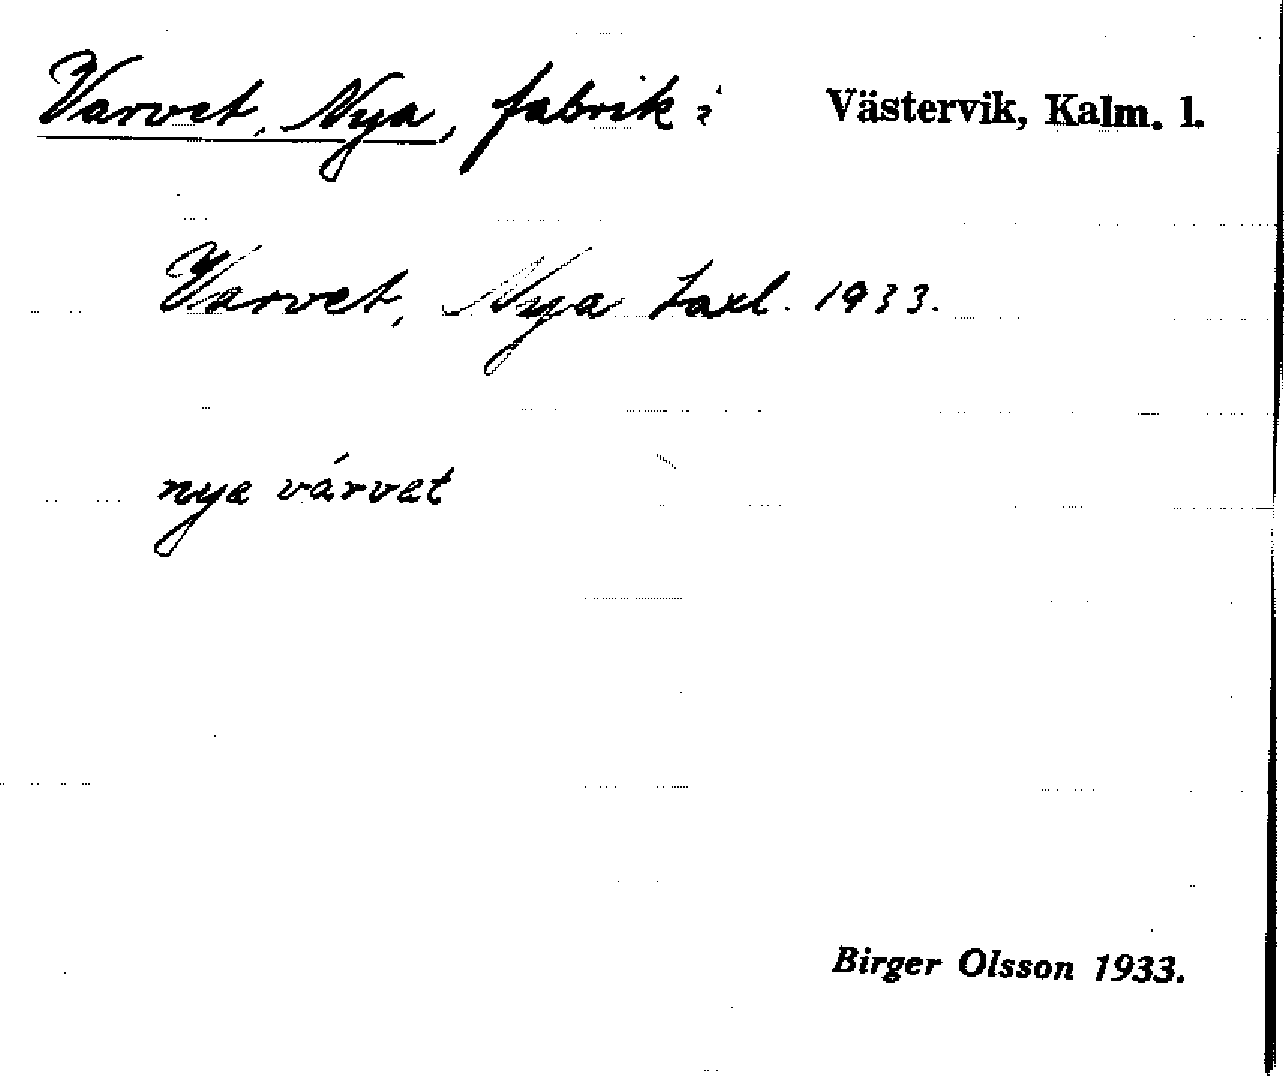 Varvet, Nya, fabrik i Västervik, Kalm. l.
Varvet, Nya taxl. 1933.
nya várvet
Birger Olsson 1933.